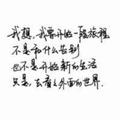 我想，我要开始一段旅程
不是和什么告别
也不是开始新的生活
只是，去看看外面的世界.